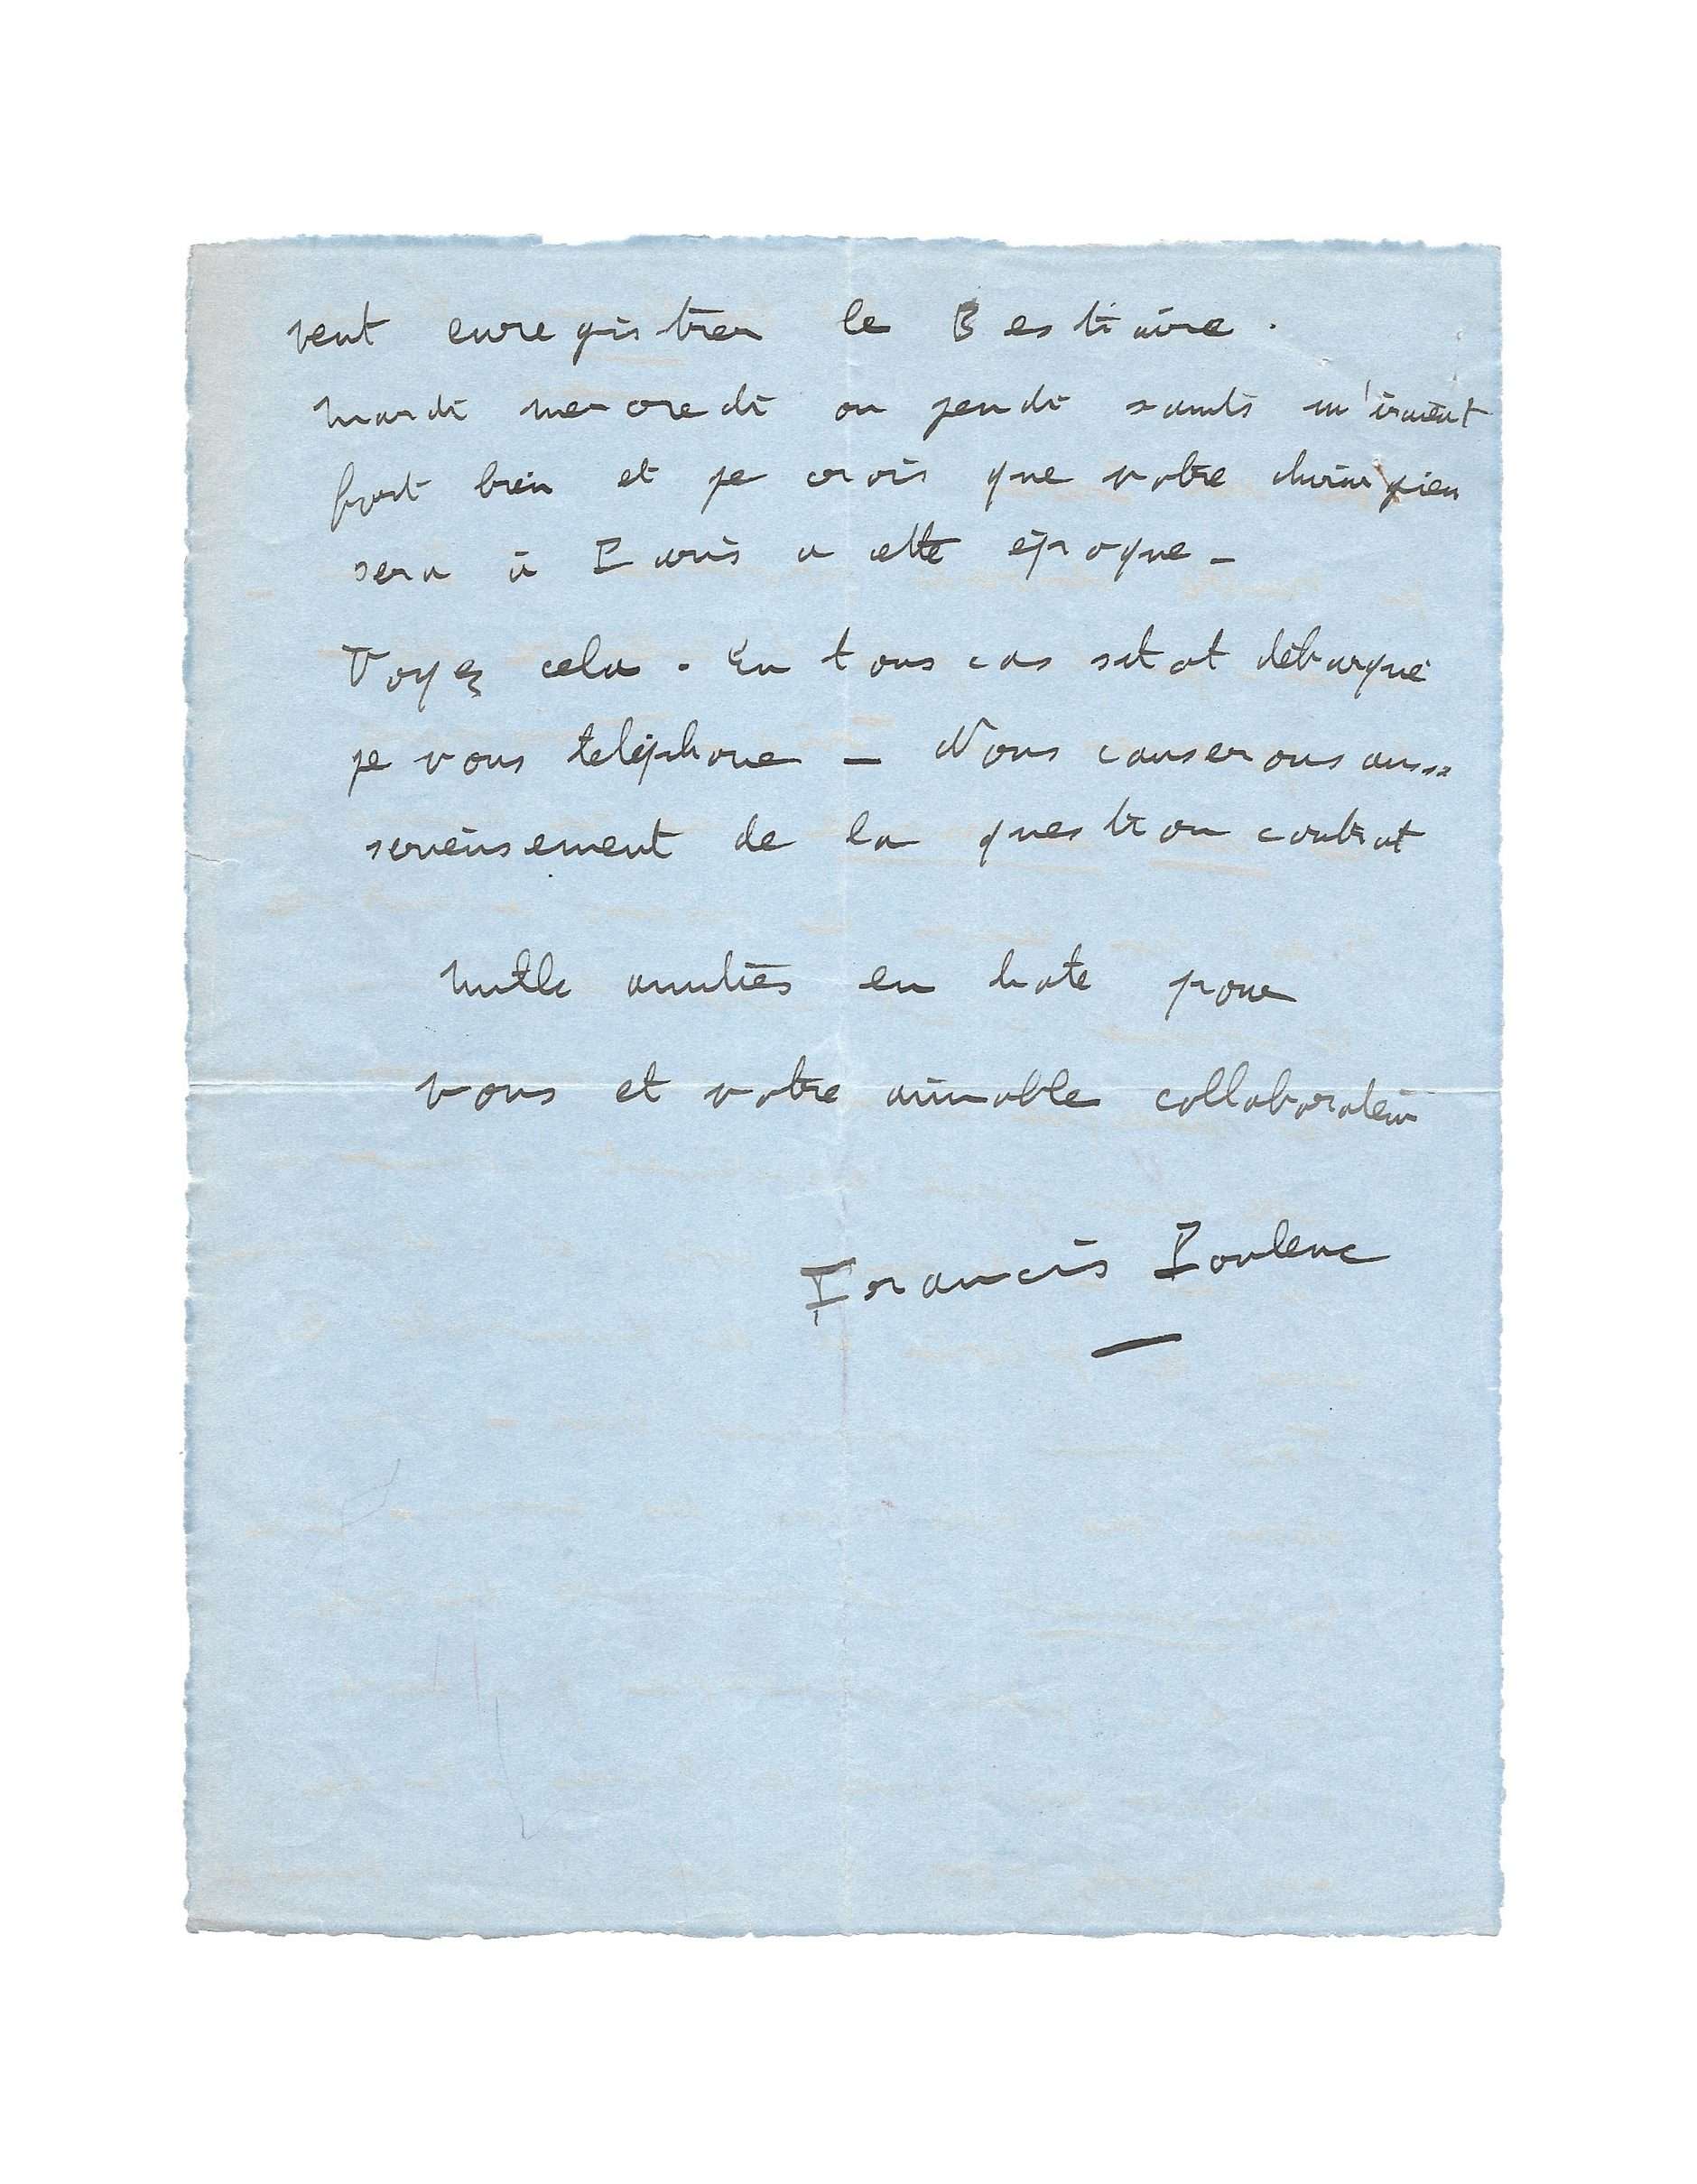 veut enregistrer le Bestiaire.
mardi mercredi ou jeudi saints m'iraient
fort bien et je crois que votre chirurgien
sera à Paris a cette époque –
Voyez cela. En tous cas sitot débarqué
je vous telephone – Nous causerons aussi
serieusement de la question contrat
mille amitiés en hate pour
vous et votre aimable collaborateur
Francis Poulenc